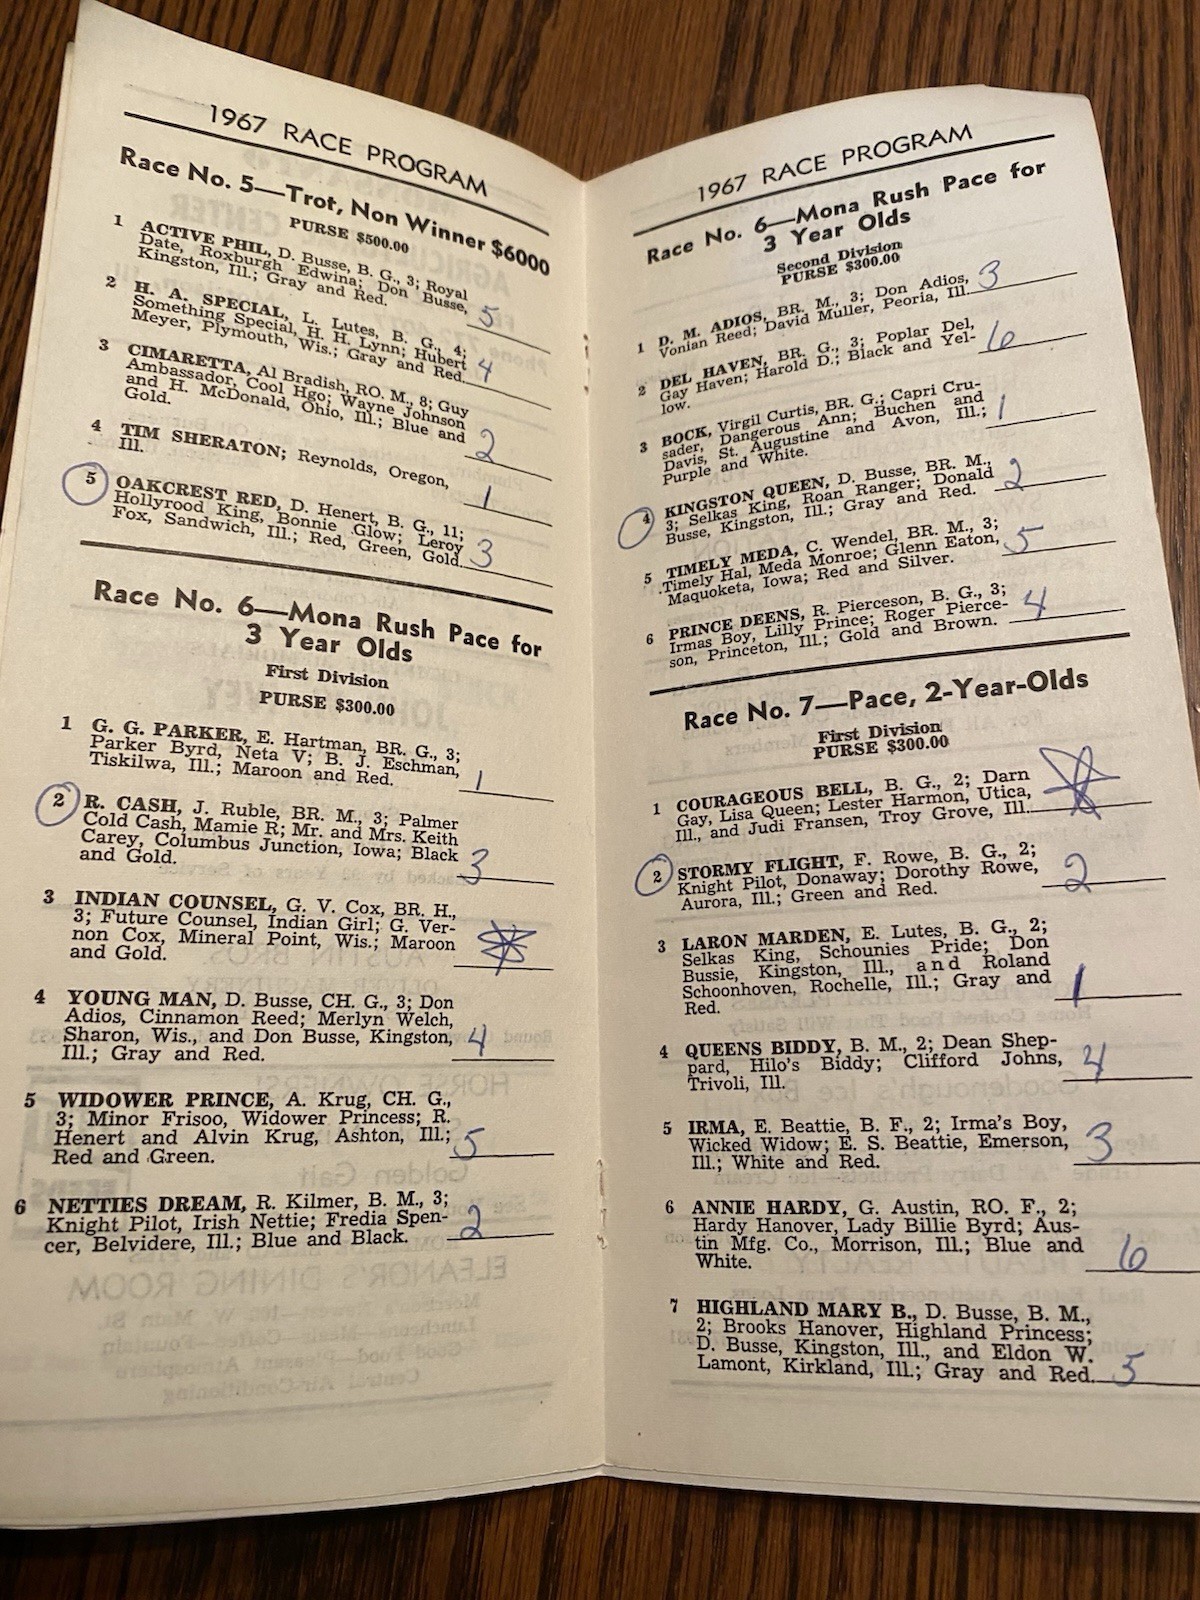 1967 RACE PROGRAM
Race No. 5—Trot, Non Winner $6000
PURSE $500.00
1 ACTIVE PHIL, D. Busse, B. G., 3; Royal
Date, Roxburgh Edwina; Don Busse,
Kingston, Ill.; Gray and Red. 5
2 H. A. SPECIAL, L. Lutes, B. G., 4;
Something Special, H. H. Lynn; Hubert
Meyer, Plymouth, Wis.; Gray and Red. 4
3 CIMARETTA, Al Bradish, RO. M., 8; Guy
Ambassador, Cool Hgo; Wayne Johnson
and H. McDonald, Ohio, Ill.; Blue and
Gold. 2
4 TIM SHERATON; Reynolds, Oregon,
Ill. 1
5 OAKCREST RED, D. Henert, B. G., 11;
Hollyrood King, Bonnie Glow; Leroy
Fox, Sandwich, Ill.; Red, Green, Gold. 3
Race No. 6—Mona Rush Pace for
3 Year Olds
First Division
PURSE $300.00
1 G. G. PARKER, E. Hartman, BR. G., 3;
Parker Byrd, Neta V; B. J. Eschman,
Tiskilwa, Ill.; Maroon and Red. 1
2 R. CASH, J. Ruble, BR. M., 3; Palmer
Cold Cash, Mamie R; Mr. and Mrs. Keith
Carey, Columbus Junction, Iowa; Black
and Gold. 3
3 INDIAN COUNSEL, G. V. Cox, BR. H.,
3; Future Counsel, Indian Girl; G. Ver-
non Cox, Mineral Point, Wis.; Maroon
and Gold.
4 YOUNG MAN, D. Busse, CH. G., 3; Don
Adios, Cinnamon Reed; Merlyn Welch,
Sharon, Wis., and Don Busse, Kingston,
Ill.; Gray and Red. 4
5 WIDOWER PRINCE, A. Krug, CH. G.,
3; Minor Frisoo, Widower Princess; R.
Henert and Alvin Krug, Ashton, Ill.;
Red and Green. 5
6 NETTIES DREAM, R. Kilmer, B. M., 3;
Knight Pilot, Irish Nettie; Fredia Spen-
cer, Belvidere, Ill.; Blue and Black. 2
1967 RACE PROGRAM
Race No. 6—Mona Rush Pace for
3 Year Olds
Second Division
PURSE $300.00
1 D. M. ADIOS, BR. M., 3; Don Adios,
Vonian Reed; David Muller, Peoria, Ill. 3
2 DEL HAVEN, BR. G., 3; Poplar Del,
Gay Haven; Harold D.; Black and Yel-
low. 6
3 BOCK, Virgil Curtis, BR. G.; Capri Cru-
sader, Dangerous Ann; Buchen and
Davis, St. Augustine and Avon, Ill.;
Purple and White. 1
4 KINGSTON QUEEN, D. Busse, BR. M.,
3; Selkas King, Roan Ranger; Donald
Busse, Kingston, Ill.; Gray and Red. 2
5 TIMELY MEDA, C. Wendel, BR. M., 3;
Timely Hal, Meda Monroe; Glenn Eaton,
Maquoketa, Iowa; Red and Silver. 5
6 PRINCE DEENS, R. Pierceson, B. G., 3;
Irmas Boy, Lilly Prince; Roger Pierce-
son, Princeton, Ill.; Gold and Brown. 4
Race No. 7—Pace, 2-Year-Olds
First Division
PURSE $300.00
1 COURAGEOUS BELL, B. G., 2; Darn
Gay, Lisa Queen; Lester Harmon, Utica,
Ill., and Judi Fransen, Troy Grove, Ill.
2 STORMY FLIGHT, F. Rowe, B. G., 2;
Knight Pilot, Donaway; Dorothy Rowe,
Aurora, Ill.; Green and Red. 2
3 LARON MARDEN, E. Lutes, B. G., 2;
Selkas King, Schounies Pride; Don
Bussie, Kingston, Ill., and Roland
Schoonhoven, Rochelle, Ill.; Gray and
Red. 1
4 QUEENS BIDDY, B. M., 2; Dean Shep-
pard, Hilo's Biddy; Clifford Johns,
Trivoli, Ill. 4
5 IRMA, E. Beattie, B. F., 2; Irma's Boy,
Wicked Widow; E. S. Beattie, Emerson,
Ill.; White and Red. 3
6 ANNIE HARDY, G. Austin, RO. F., 2;
Hardy Hanover, Lady Billie Byrd; Aus-
tin Mfg. Co., Morrison, Ill.; Blue and
White. 6
7 HIGHLAND MARY B., D. Busse, B. M.,
2; Brooks Hanover, Highland Princess;
D. Busse, Kingston, Ill., and Eldon W.
Lamont, Kirkland, Ill.; Gray and Red. 5